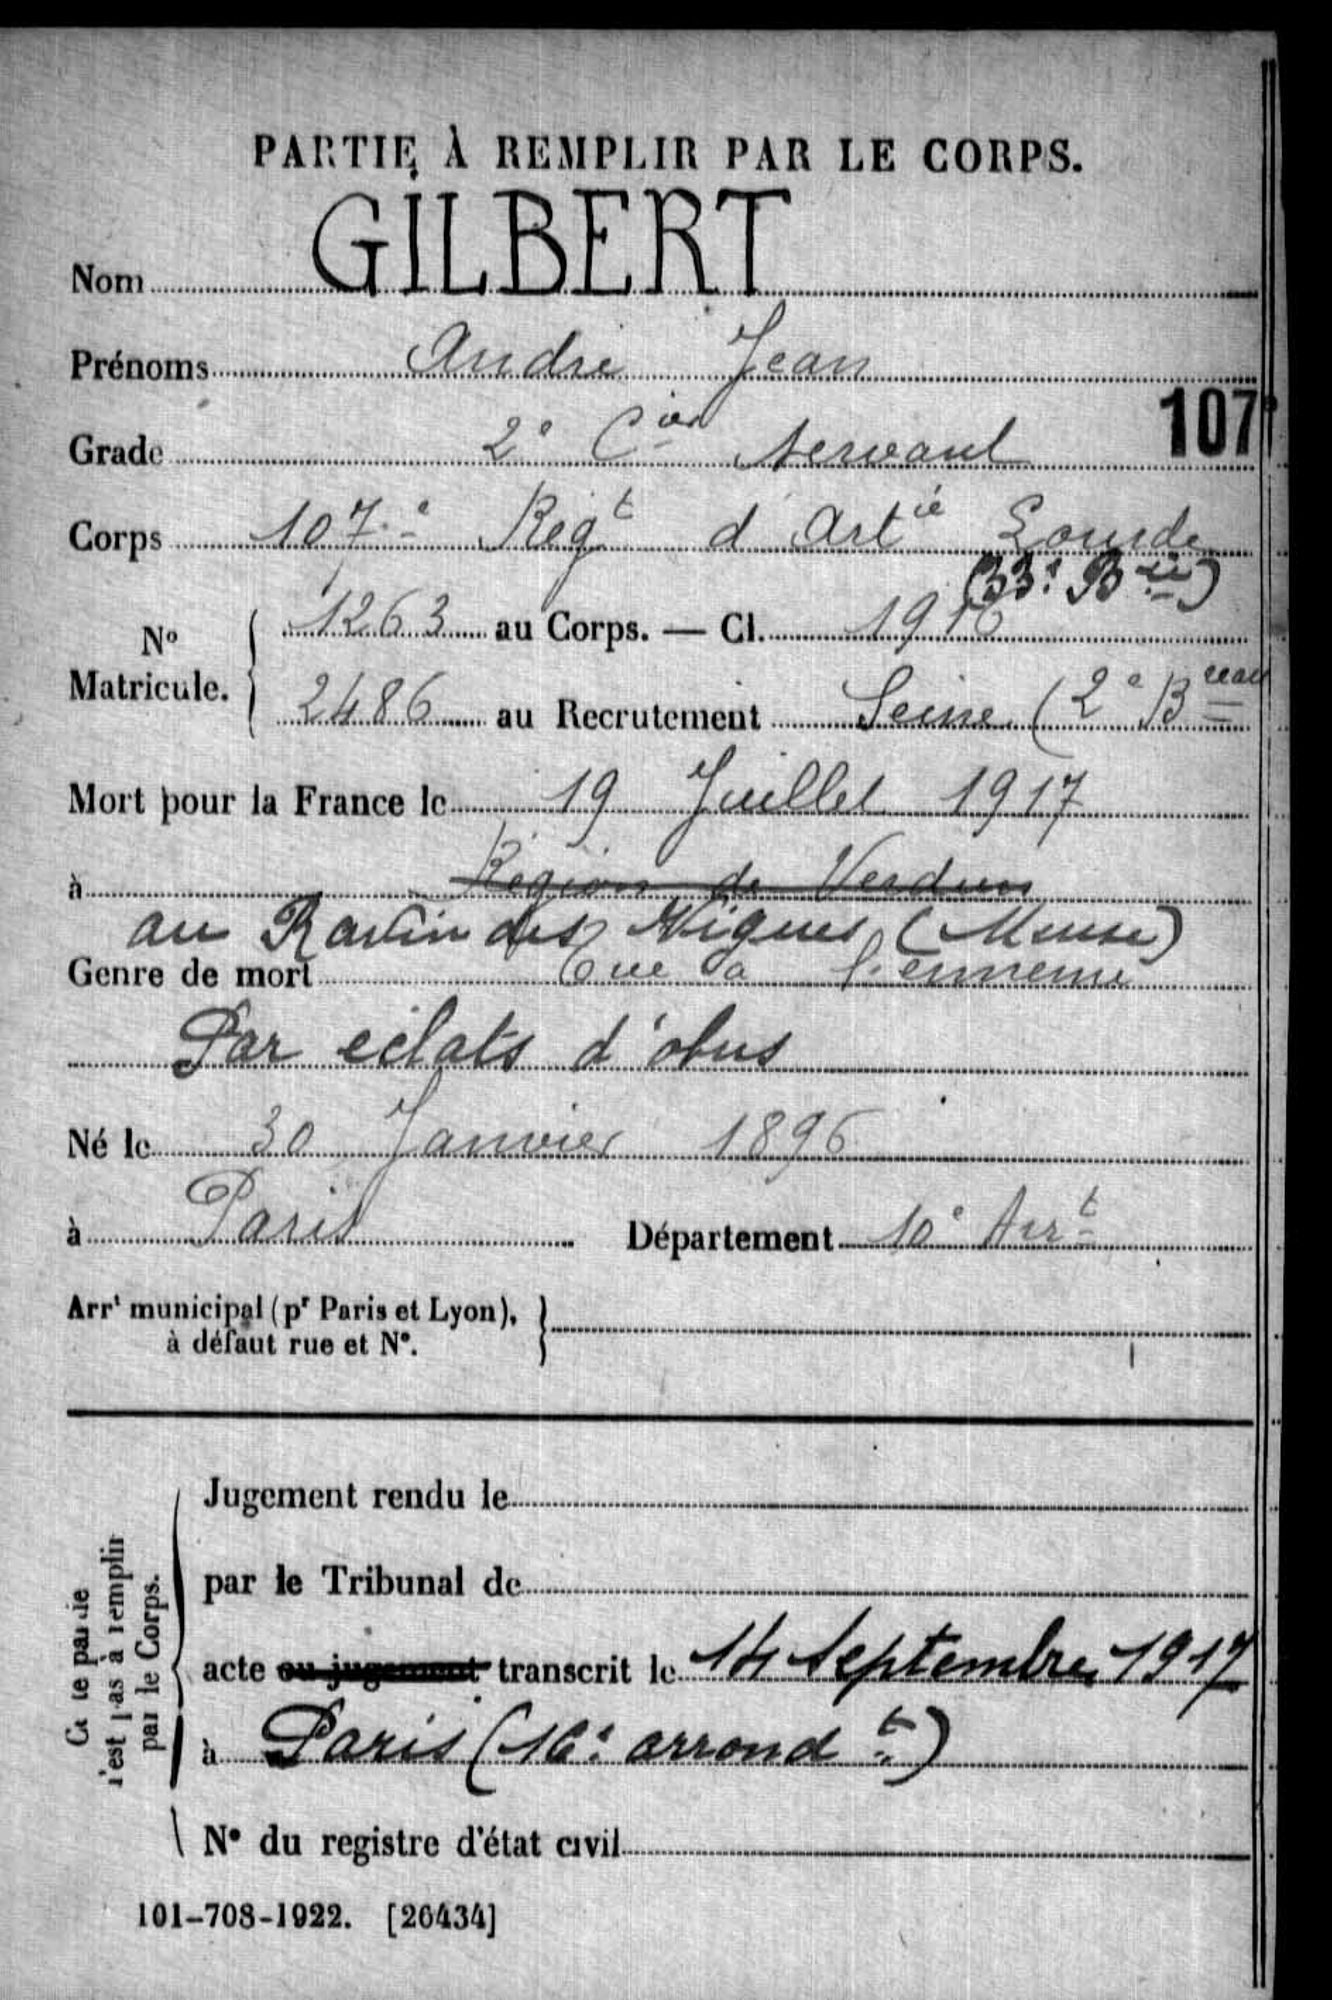 PARTIE À REMPLIR PAR LE CORPS.
Nom GILBERT
Prénoms André Jean
107
Grade 2e Cier Servant
Corps 107e Regt d'Artie Lourde
(33e Bie)
No Matricule. { 1263 au Corps. — Cl. 1916
2486 au Recrutement Seine (2e Breau
Mort pour la France le 19 Juillet 1917
à Région de Verdun
au Ravin des Vignes (Meuse)
Genre de mort Tué à l'ennemi
Par éclats d'obus
Né le 30 Janvier 1896
à Paris Département 10e Arrt
Arrt municipal (pr Paris et Lyon), }
à défaut rue et No.
Cette partie n'est pas à remplir par le Corps.
Jugement rendu le
par le Tribunal de
acte ou jugement transcrit le 14 Septembre 1917
à Paris (16e arrondt)
No du registre d'état civil
101-708-1922. [26434]